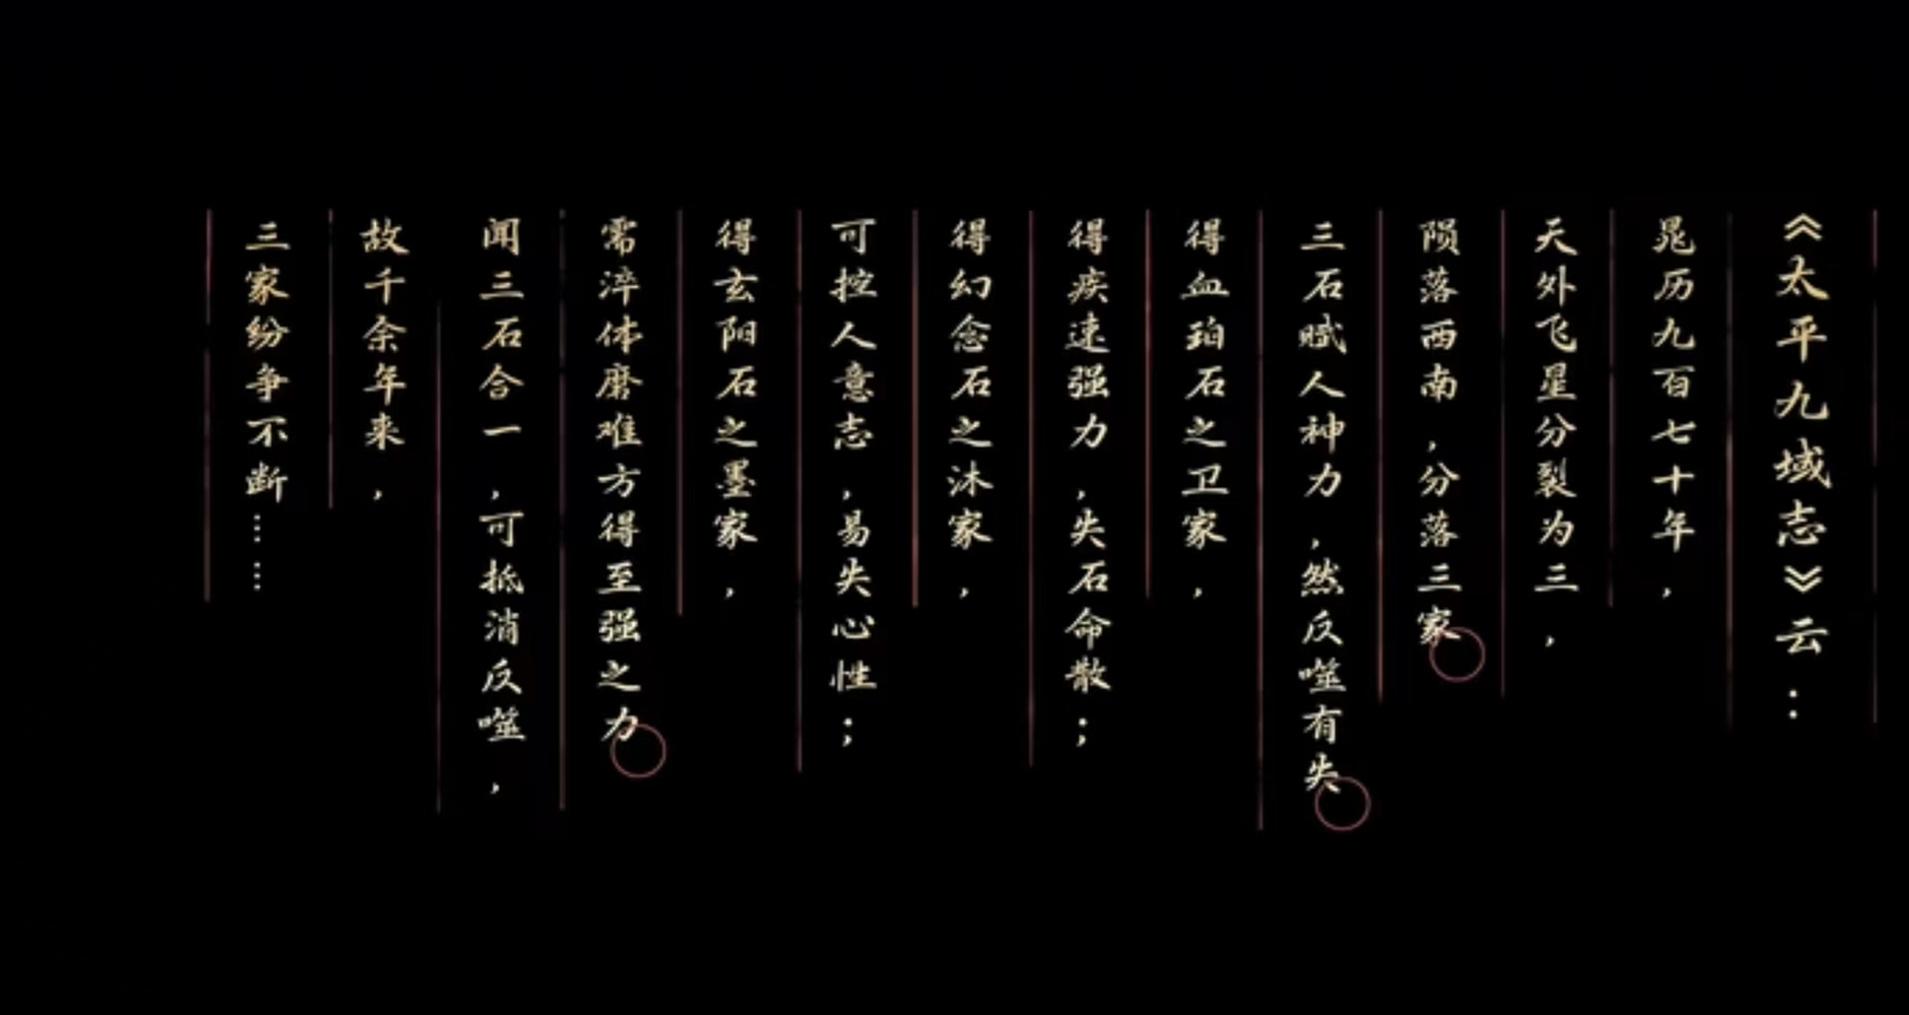 《太平九域志》云：
晁历九百七十年，
天外飞星分裂为三，
陨落西南，分落三家。
三石赋人神力，然反噬有失。
得血珀石之卫家，
得疾速强力，失石命散；
得幻念石之沐家，
可控人意志，易失心性；
得玄阳石之墨家，
需淬体磨难方得至强之力。
闻三石合一，可抵消反噬，
故千余年来，
三家纷争不断……